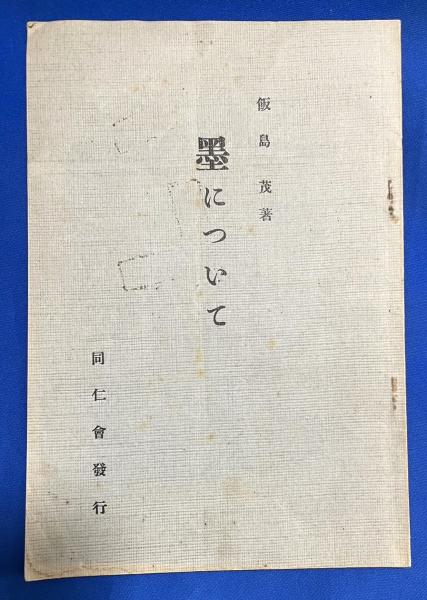 飯島茂著
墨について
同仁會發行